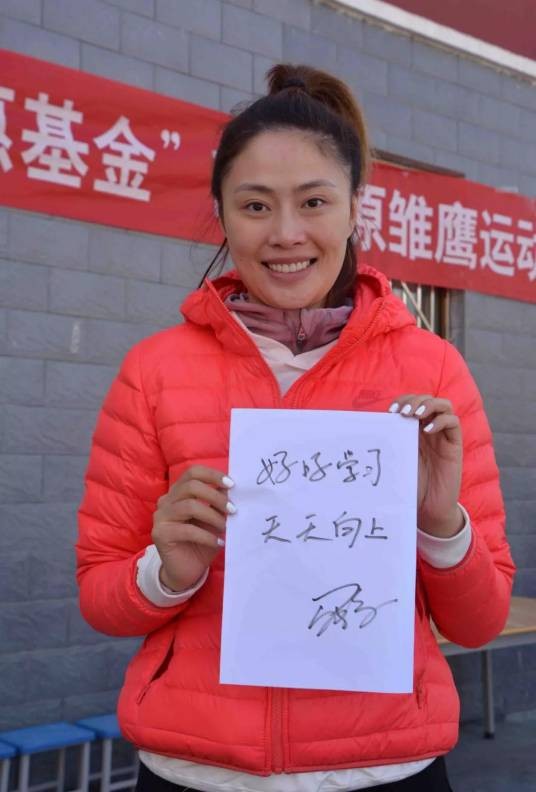 惠基金” 原雏鹰运动
好好学习
天天向上